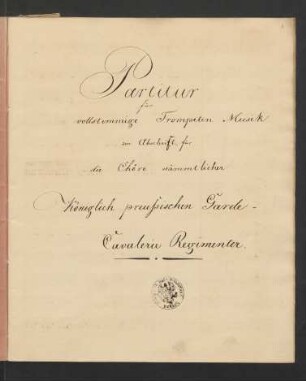 Partitur
für
vollstimmige Trompeten Musik
in Abschrift für
die Chöre sämmtlicher
Königlich preußischen Garde-
Cavalerie Regimenter.